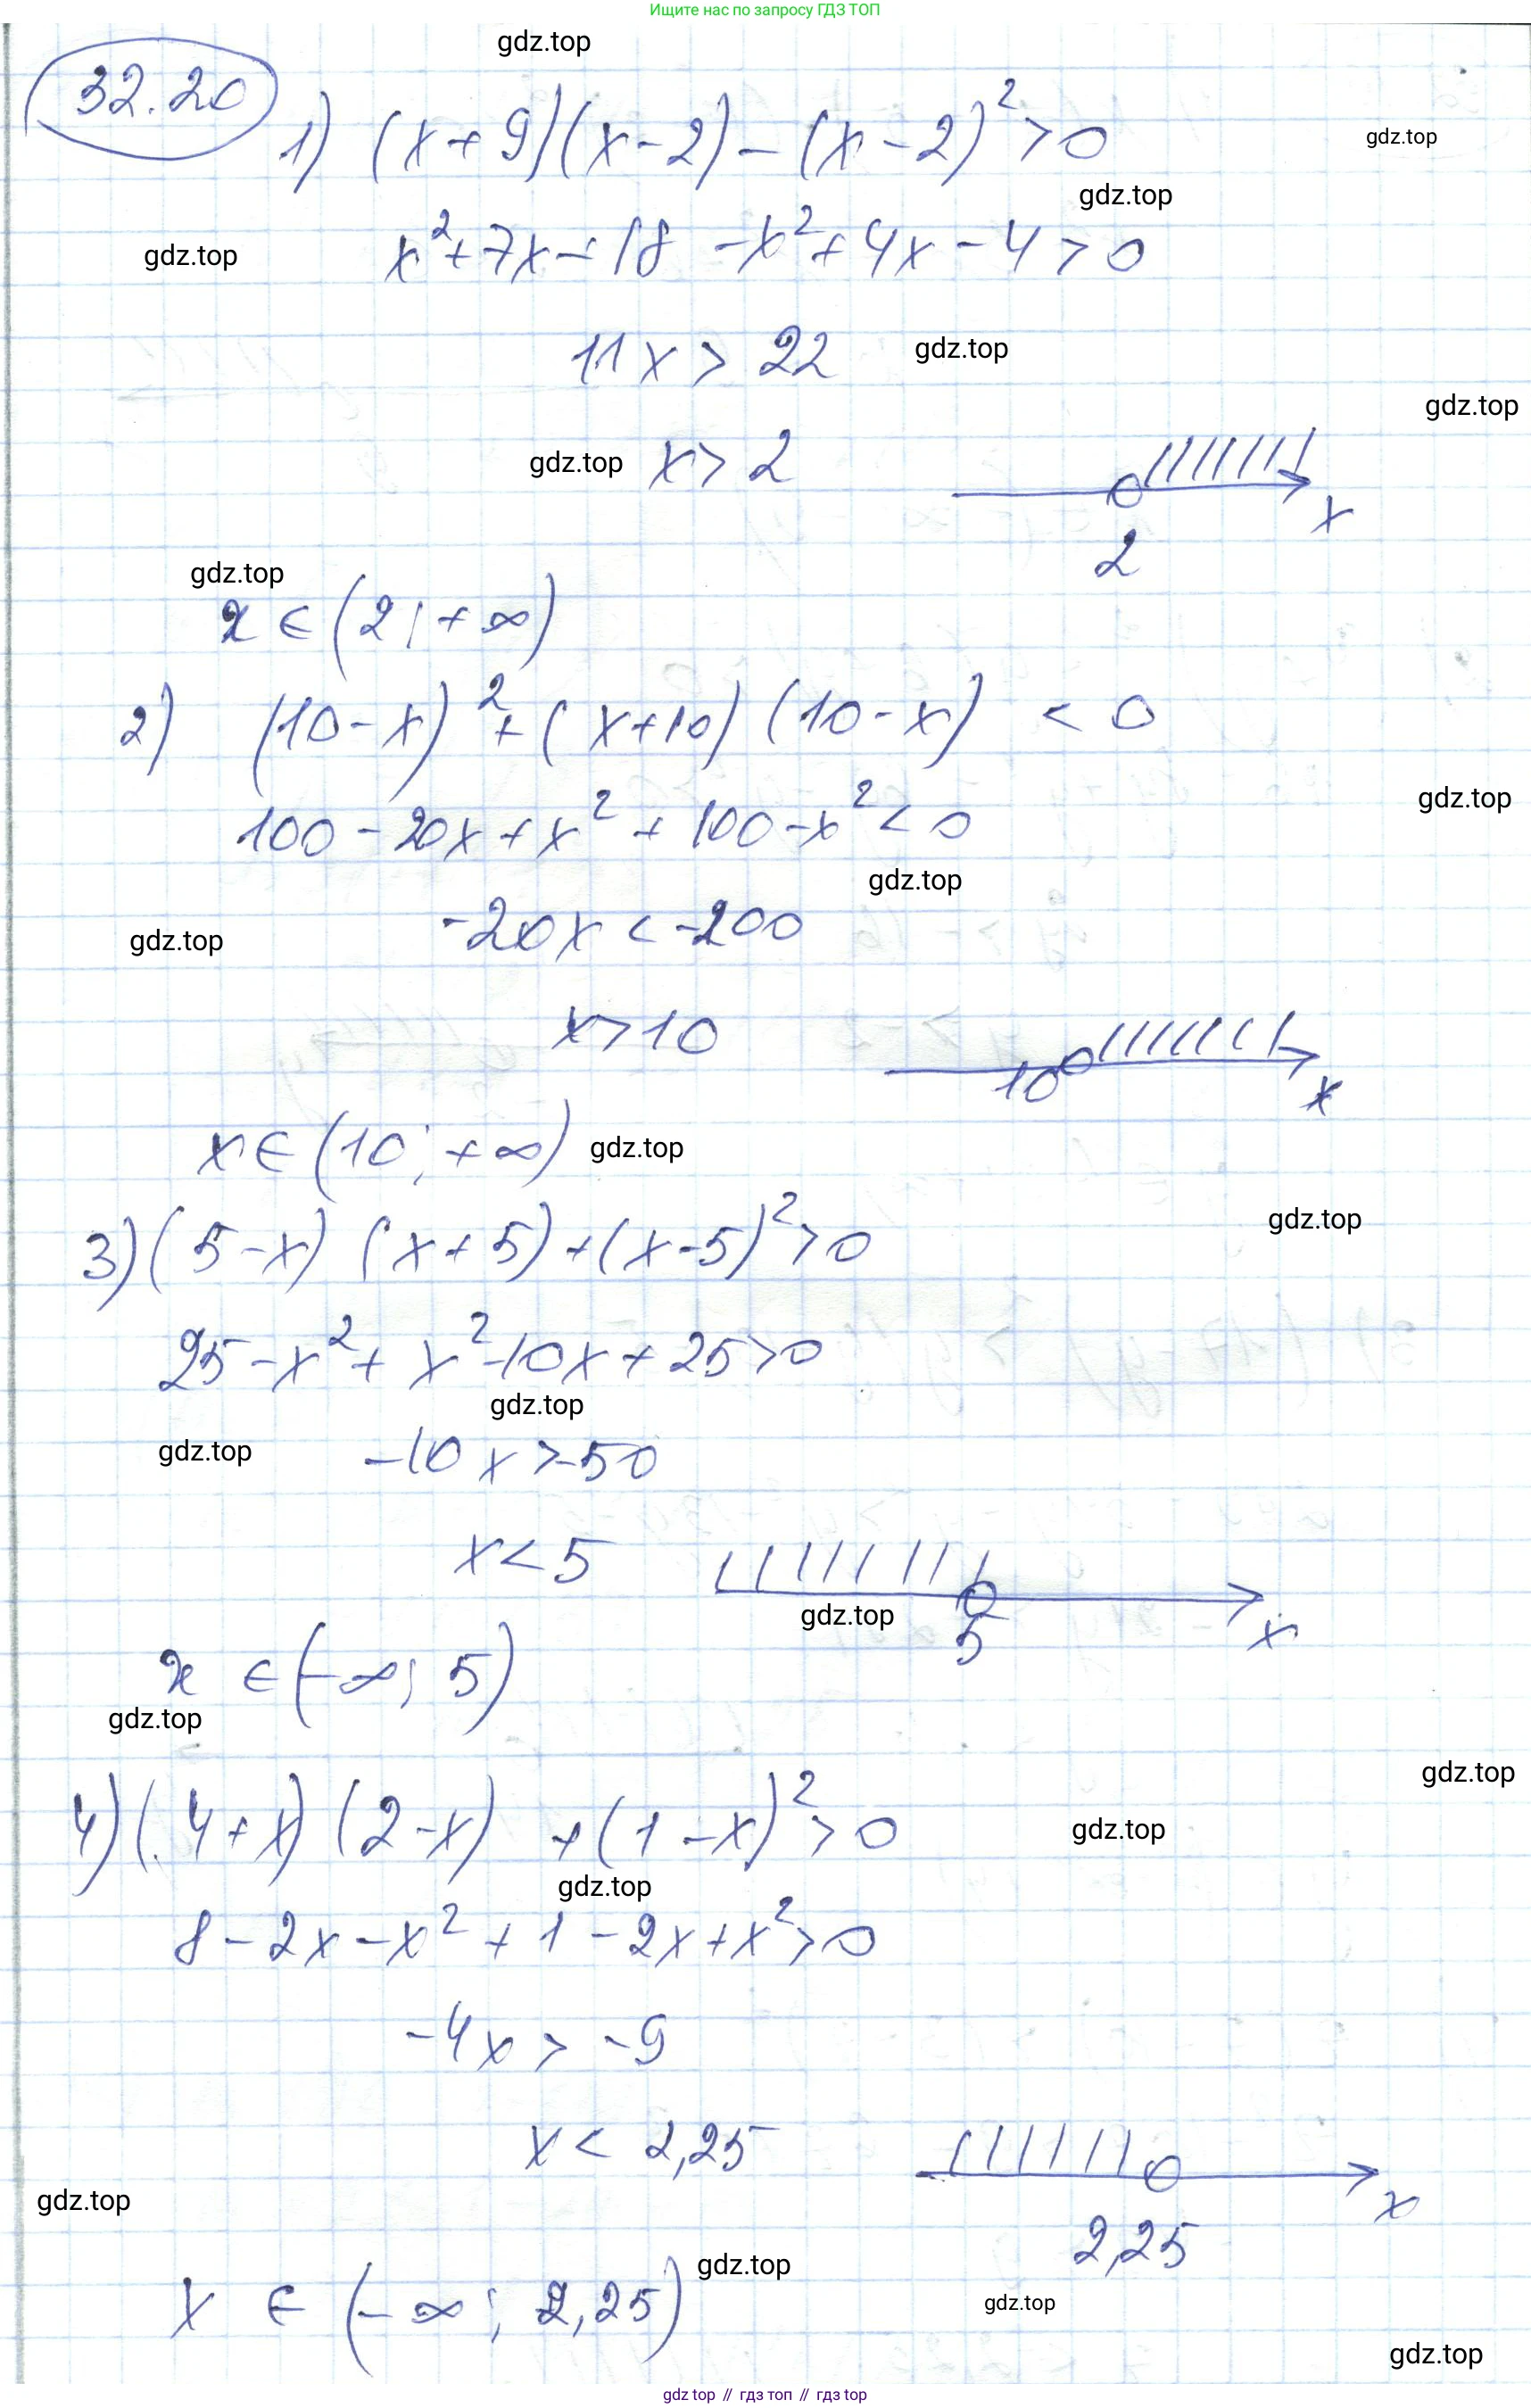 Ищите нас по запросу ГДЗ ТОП
gdz.top
32.20
1) (x+9)(x-2)-(x-2)²>0
gdz.top
gdz.top
gdz.top
x²+7x-18-x²+4x-4>0
11x > 22
gdz.top
gdz.top
gdz.top
x>2
x
2
gdz.top
x∈(2;+∞)
2) (10-x)²+(x+10)(10-x) < 0
gdz.top
100-20x+x²+100-x²<0
gdz.top
-20x<-200
gdz.top
x>10
10
x
x∈(10;+∞)
gdz.top
gdz.top
3)(5-x)(x+5)+(x-5)²>0
25-x²+x²-10x+25>0
gdz.top
gdz.top
-10x>-50
x<5
gdz.top
5
x
x∈(-∞;5)
gdz.top
gdz.top
4)(4+x)(2-x)+(1-x)²>0
gdz.top
gdz.top
8-2x-x²+1-2x+x²>0
-4x > -9
x < 2,25
gdz.top
x
2,25
gdz.top
x ∈ (-∞; 2,25)
gdz.top
gdz.top
gdz top // гдз топ // gdz top